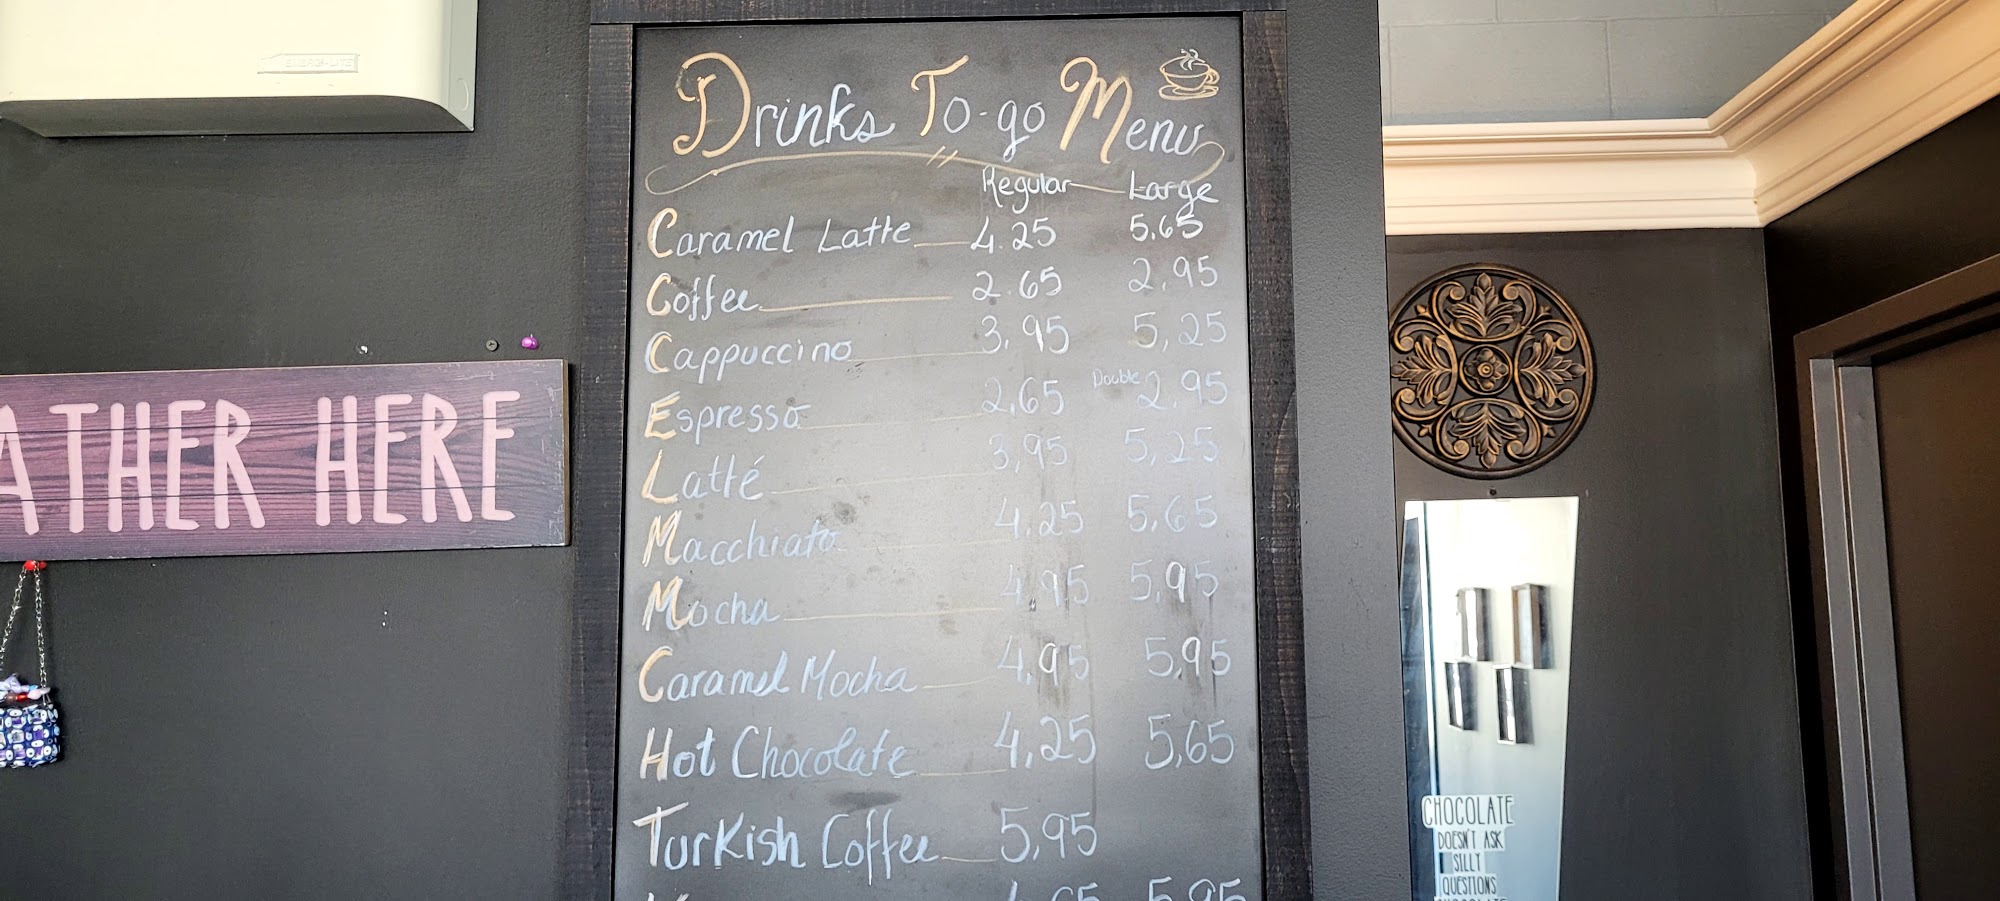 ENERGI-LITE
Drinks To-go Menu
Regular Large
Caramel Latte 4.25 5.65
Coffee 2.65 2.95
Cappuccino 3.95 5,25
Espresso 2,65 Double 2.95
Latté 3,95 5,25
Macchiato 4,25 5,65
Mocha 4,95 5,95
Caramel Mocha 4,95 5,95
Hot Chocolate 4,25 5,65
Turkish Coffee 5,95
5,95
ATHER HERE
CHOCOLATE
DOESN'T ASK
SILLY
QUESTIONS
CHOCOLATE